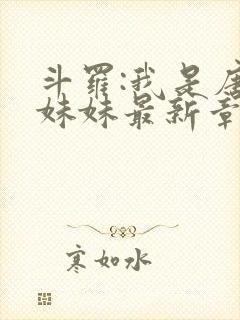 斗罗:我是唐
妹妹最新章
寒如水